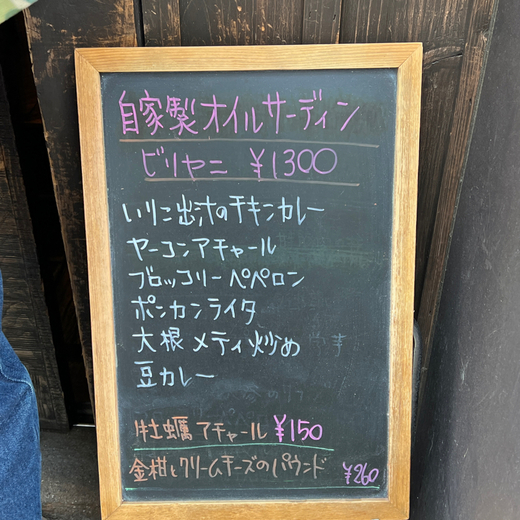 自家製オイルサーディン
ビリヤニ ¥1300
いりこ出汁のチキンカレー
ヤーコンアチャール
ブロッコリーペペロン
ポンカンライタ
大根メティ炒め
豆カレー
牡蠣アチャール ¥150
金柑とクリームチーズのパウンド ¥260